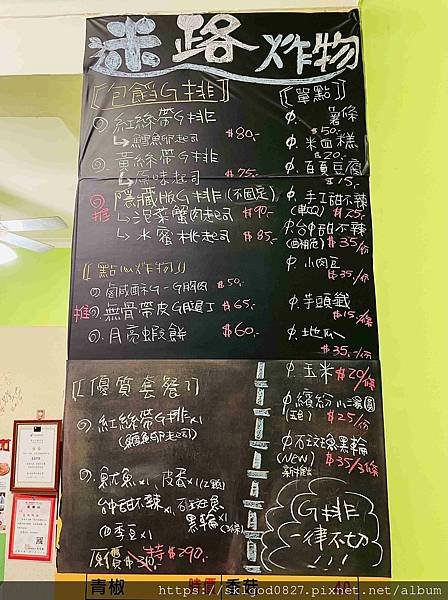 迷路炸物
〖包餡G排〗
紅絲帶G排
↳鱈魚卵起司 $80.-
黃絲帶G排
↳原味起司 $75.-
推 隱藏版G排(不固定)
↳泡菜蟹肉起司 $90.-
↳水蜜桃起司 $85.-
〖點心炸物〗
鹹酥G胸肉 $50.-
推 無骨帶皮G腿丁 $65.-
月亮蝦餅 $60.-
〖單點〗
薯條
$50.-
米血糕
$20.-
百頁豆腐
$15.-
手工甜不辣
(軟Q) $25.-
台中甜不辣
$35/份
小肉豆
$35.-/份
芋頭籤
$15./條
地瓜
$35.-/份
玉米 $20/條
繽紛小湯圓
(五色) $25/份
不斑魚黑輪
(NEW) $35/3條
〖優質套餐〗
紅絲帶G排x1
(鱈魚卵起司)
魷魚x1 皮蛋x1(2顆)
台中甜不辣x1
黑輪x1(3條)
四季豆x1
原價$310 特$290.-
G排
一律不切
!!!
青椒 時價 香菇 40
https://skigod0827.pixnet.net/album